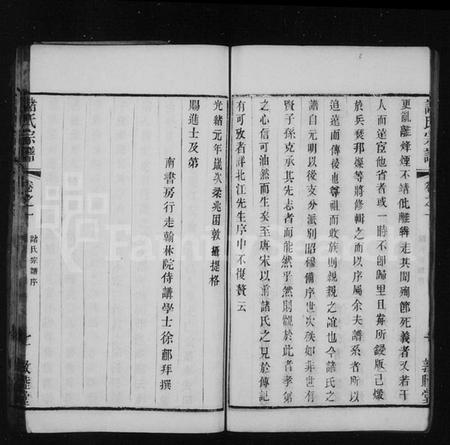 諸氏宗譜
卷之一
敦睦堂
更亂離烽煙不靖仳離犇走其間殉節死義者又若干
人而遠宦他省者或一時不卽歸里且舜所鋟版已燬
於兵燹邦燦等將修輯之而以序屬余夫譜系者所以
追遠而傳後也尊祖而收族則親親之誼也今諸氏之
譜自元明以後支分派別昭穆備序世次秩如非世有
賢子孫克承其先志者而能然乎然則觀於此者孝弟
之心信可油然而生矣至唐宋以前諸氏之見於傳記
有可攷者詳北江先生序中不復贅云
光緒元年歲次柔兆困敦攝提格
賜進士及第
南書房行走翰林院侍講學士徐郙拜撰
諸氏宗譜
卷之一
諸氏宗譜序
七
敦睦堂